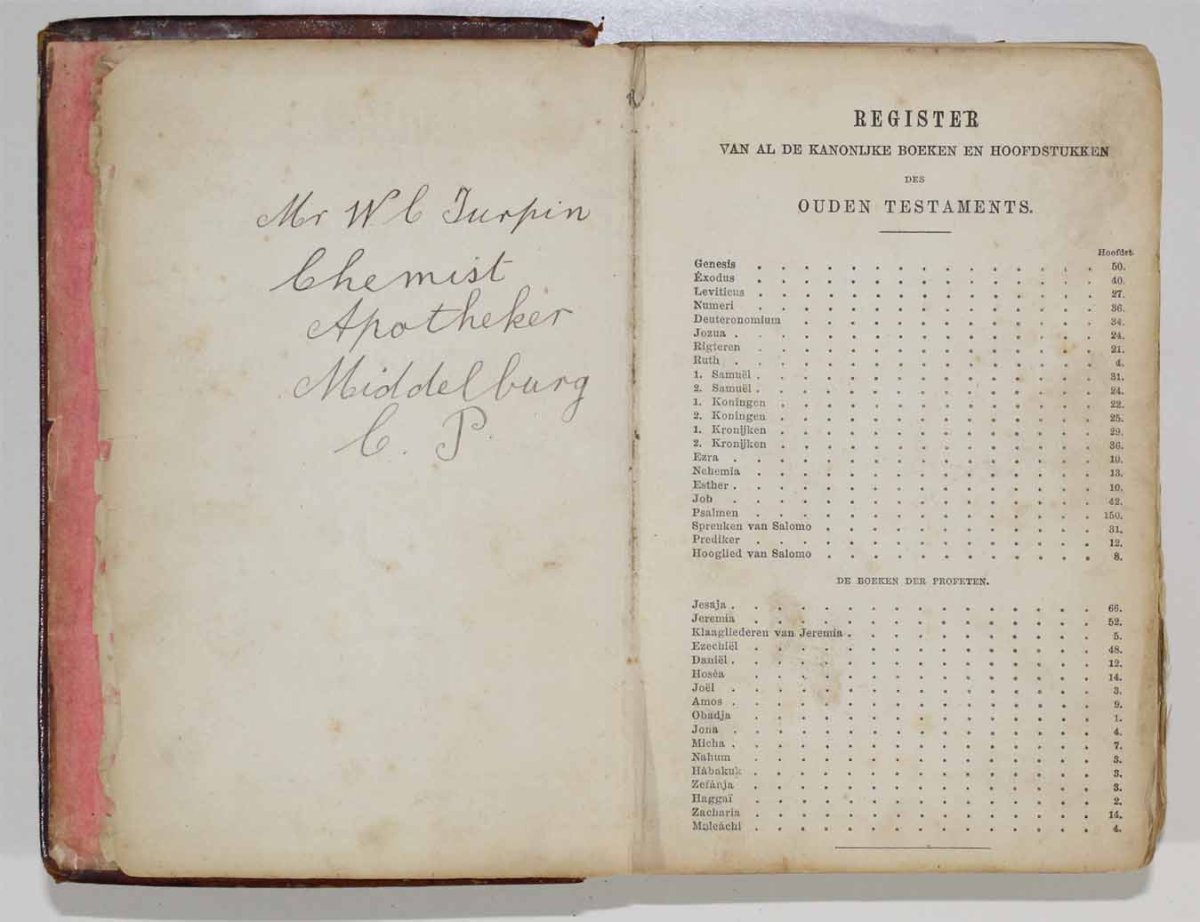 Mr W C Turpin
Chemist
Apotheker
Middelburg
C. P.
REGISTER
VAN AL DE KANONIJKE BOEKEN EN HOOFDSTUKKEN
DES
OUDEN TESTAMENTS.
Hoofdst.
Genesis . . . . . . . . . . . . . . . 50.
Éxodus . . . . . . . . . . . . . . . 40.
Leviticus . . . . . . . . . . . . . . . 27.
Numeri . . . . . . . . . . . . . . . 36.
Deuteronomium . . . . . . . . . . . . . 34.
Jozua . . . . . . . . . . . . . . . . 24.
Rigteren . . . . . . . . . . . . . . . 21.
Ruth . . . . . . . . . . . . . . . . 4.
1. Samuël . . . . . . . . . . . . . . . 31.
2. Samuël . . . . . . . . . . . . . . . 24.
1. Koningen . . . . . . . . . . . . . . 22.
2. Koningen . . . . . . . . . . . . . . 25.
1. Kronijken . . . . . . . . . . . . . . 29.
2. Kronijken . . . . . . . . . . . . . . 36.
Ezra . . . . . . . . . . . . . . . . 10.
Nehemia . . . . . . . . . . . . . . . 13.
Esther . . . . . . . . . . . . . . . . 10.
Job . . . . . . . . . . . . . . . . 42.
Psalmen . . . . . . . . . . . . . . . 150.
Spreuken van Salomo . . . . . . . . . . . . 31.
Prediker . . . . . . . . . . . . . . . 12.
Hooglied van Salomo . . . . . . . . . . . . 8.
DE BOEKEN DER PROFETEN.
Jesaja . . . . . . . . . . . . . . . . 66.
Jeremia . . . . . . . . . . . . . . . 52.
Klaagliederen van Jeremia . . . . . . . . . . . 5.
Ezechiël . . . . . . . . . . . . . . . 48.
Daniël . . . . . . . . . . . . . . . . 12.
Hoséa . . . . . . . . . . . . . . . 14.
Joël . . . . . . . . . . . . . . . . 3.
Amos . . . . . . . . . . . . . . . . 9.
Obadja . . . . . . . . . . . . . . . 1.
Jona . . . . . . . . . . . . . . . . 4.
Micha . . . . . . . . . . . . . . . . 7.
Nahum . . . . . . . . . . . . . . . 3.
Hábakuk . . . . . . . . . . . . . . . 3.
Zefánja . . . . . . . . . . . . . . . 3.
Haggaï . . . . . . . . . . . . . . . 2.
Zacharia . . . . . . . . . . . . . . . 14.
Maleáchi . . . . . . . . . . . . . . . 4.